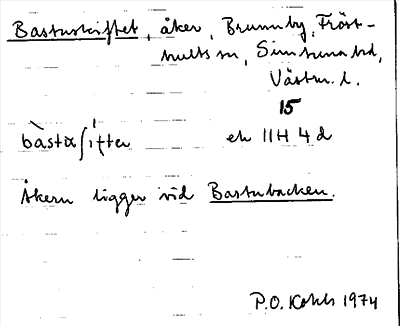 Bastuskiftet, åker, Brunnby, Fröst-
hults sn, Simtuna hd,
Västm. l.
15
ek 11H 4d
Åkern ligger vid Bastubacken.
P.O. Kohls 1974